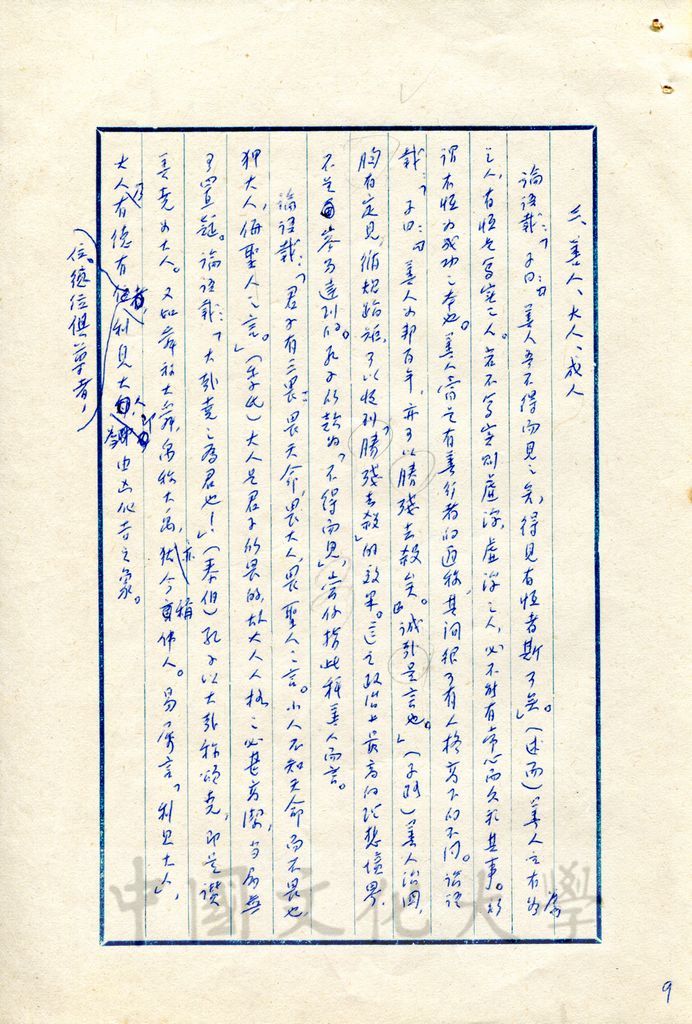 三、善人、大人、成人
論語載：「子曰：善人吾不得而見之矣，得見有恆者斯可矣。」（述而）善人之有為
之人，有恆是篤實之人。若不篤實則虛浮，虛浮之人，必不能有常心而久於其事。所
謂有恆為成功之本也。善人當是有善行者的通稱，其間很可有人格高下的不同。論語
載：「子曰：善人為邦百年，亦可以勝殘去殺矣。誠哉是言也。」（子路）善人治國，
胸有定見，循規蹈矩，可以收到「勝殘去殺」的效果。這是政治上最高的理想境界，
不是容易達到的。孔子所歎為「不得而見」，當係指此種善人而言。
論語載：「君子有三畏：畏天命，畏大人，畏聖人之言。小人不知天命而不畏也，
狎大人，侮聖人之言。」（季氏）大人是君子所畏的，故大人人格之必甚高潔，當屬無
可置疑。論語載：「大哉堯之為君也！」（泰伯）孔子以大哉稱頌堯，即是讚
美堯為大人。又如舜稱大舜，禹稱大禹，猶今亦稱偉人。易屢言「利見大人」，
大人乃有德有位者，利見大人，即為由凶化吉之象。
位德位俱尊者，
中國文化大學
9